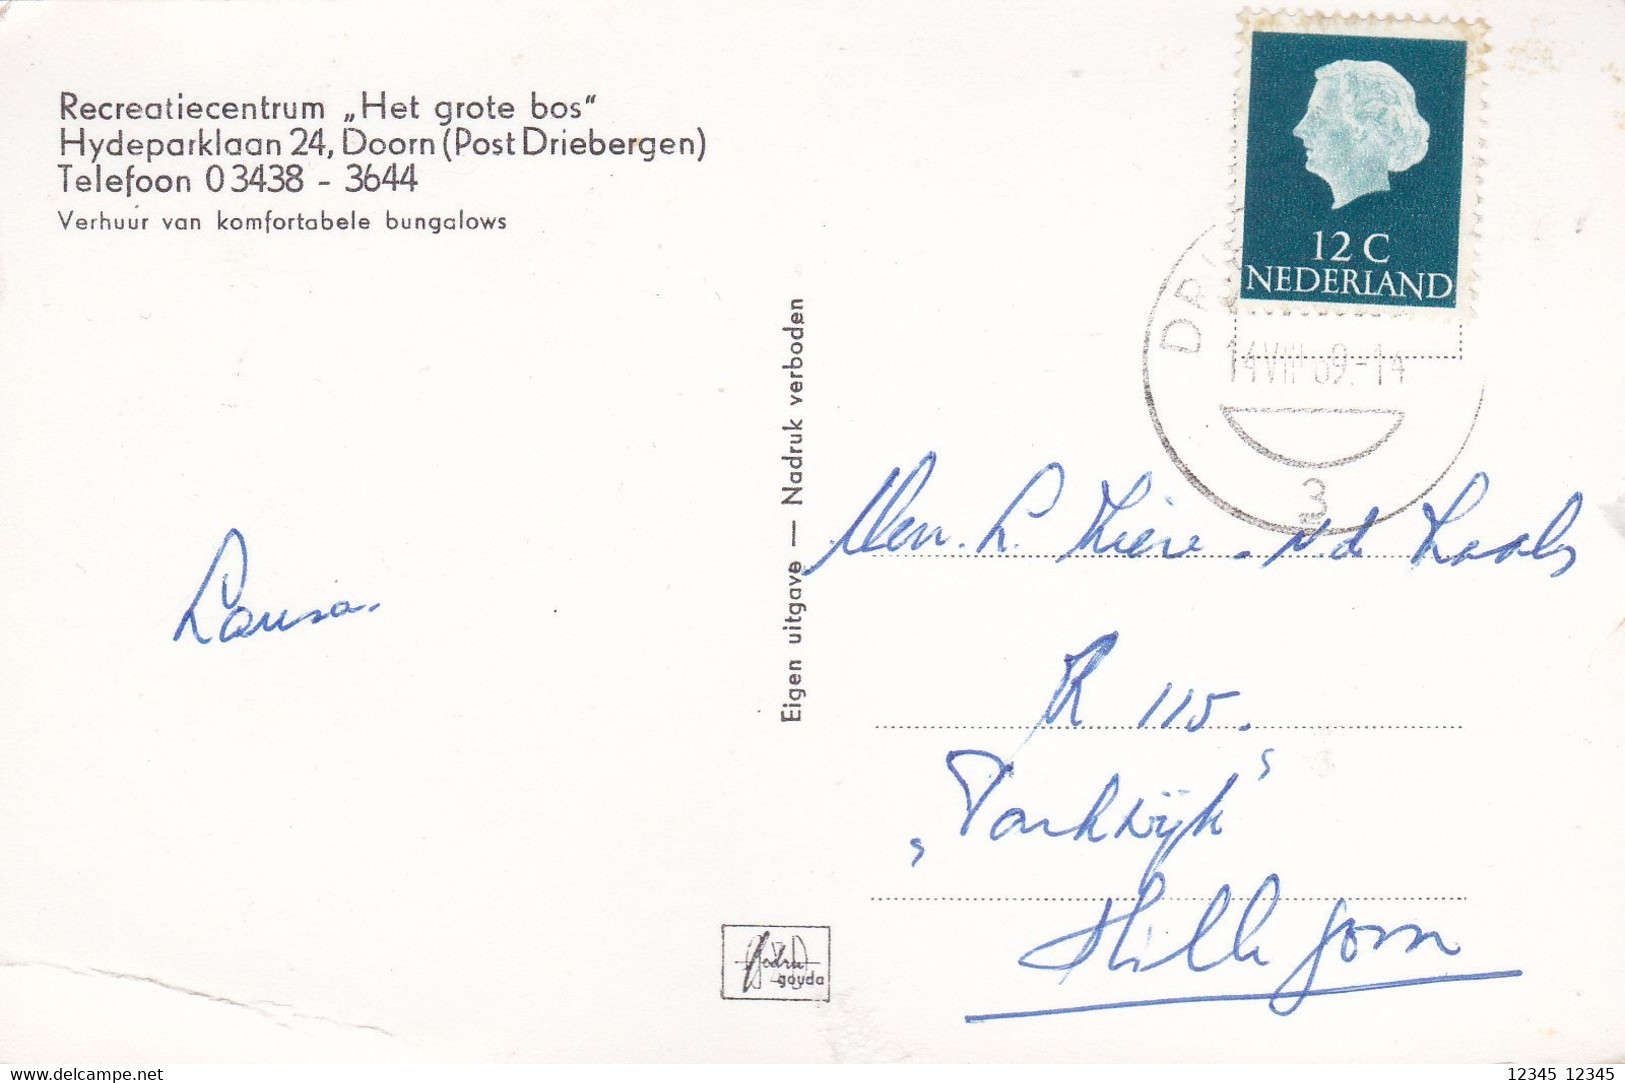 Recreatiecentrum „Het grote bos“
Hydeparklaan 24, Doorn (Post Driebergen)
Telefoon 03438 - 3644
Verhuur van komfortabele bungalows
Eigen uitgave — Nadruk verboden
12 C
NEDERLAND
14 VIII 69.-14
3
Mevr. L.
R 115.
„Parkwijk“
Hillegom
gouda
www.delcampe.net
12345 12345